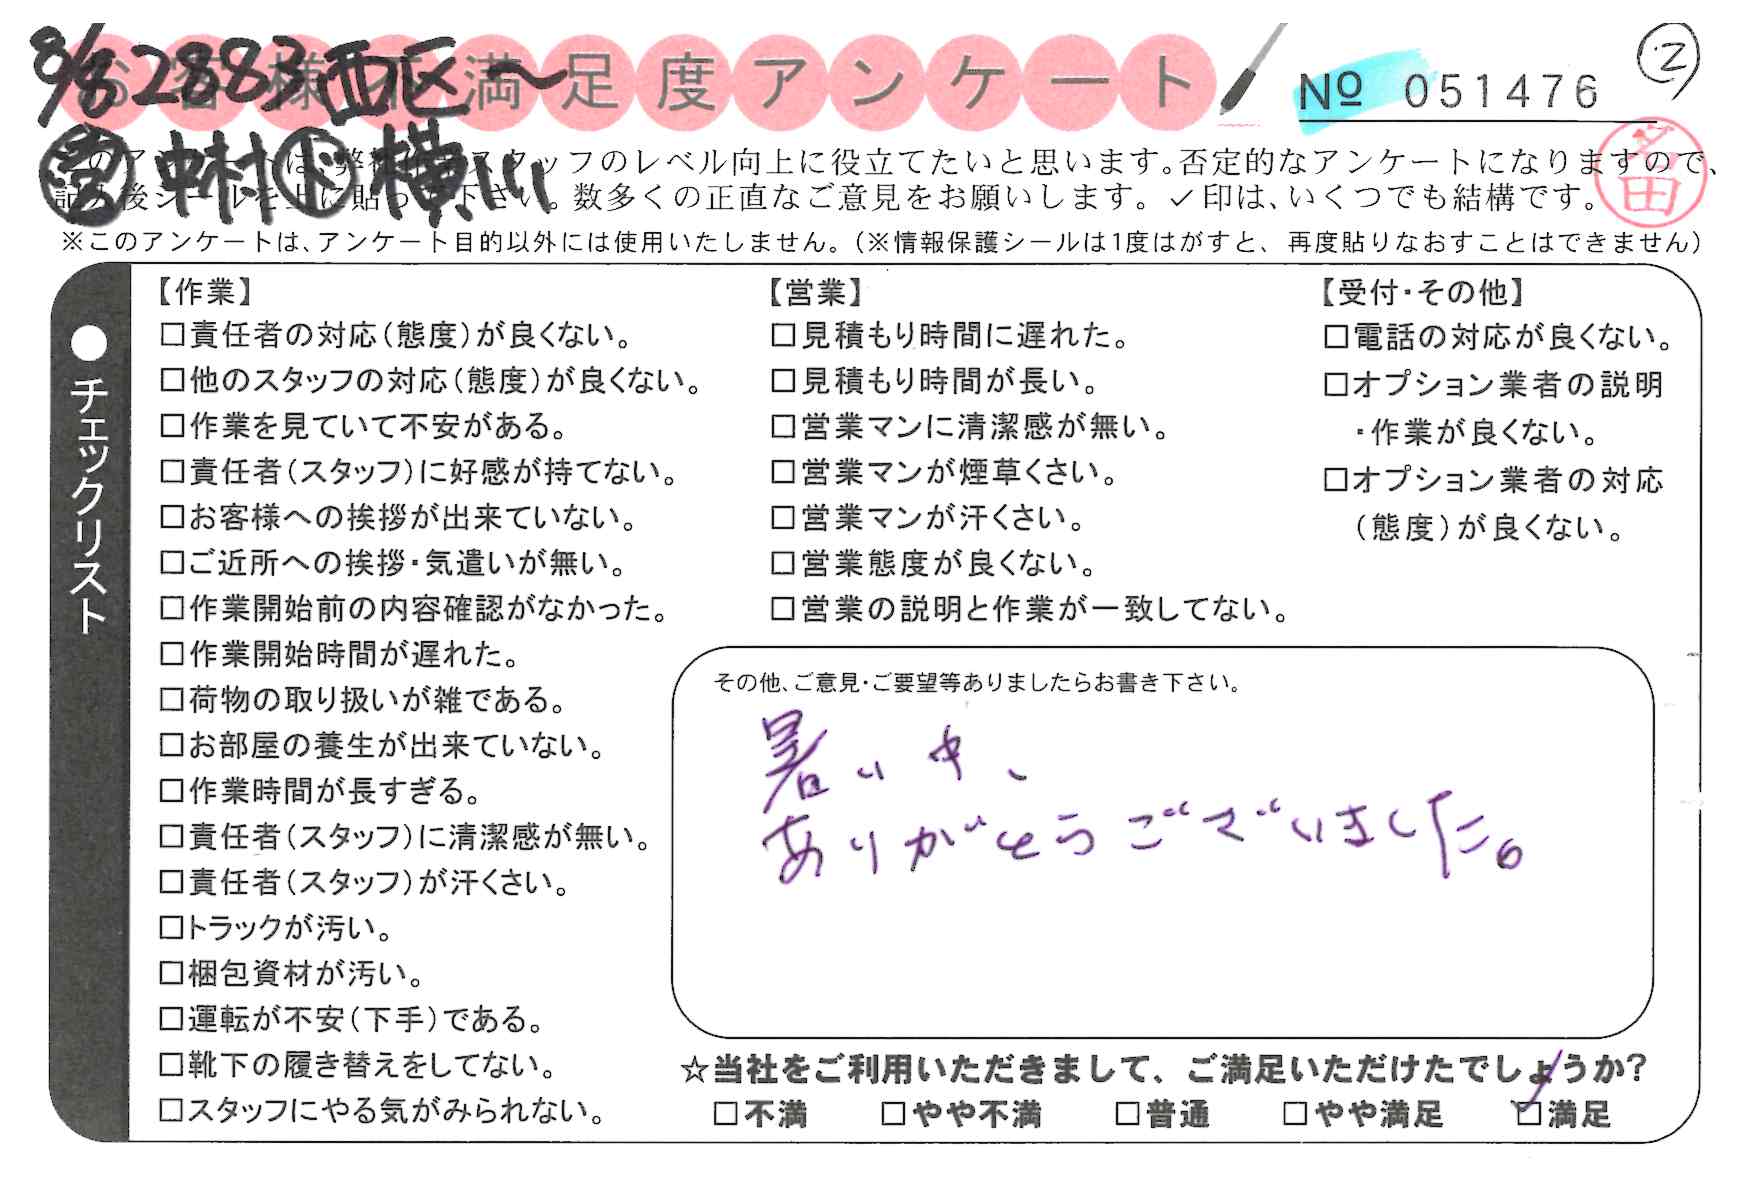 8/8 2883 西区〜
お客様不満足度アンケート
№ 051476
②
中村 ド 横山
このアンケートは、弊社作業スタッフのレベル向上に役立てたいと思います。否定的なアンケートになりますので、
記入後シールを上に貼って下さい。数多くの正直なご意見をお願いします。✓印は、いくつでも結構です。
※このアンケートは、アンケート目的以外には使用いたしません。(※情報保護シールは1度はがすと、再度貼りなおすことはできません)
●チェックリスト
【作業】
□責任者の対応(態度)が良くない。
□他のスタッフの対応(態度)が良くない。
□作業を見ていて不安がある。
□責任者(スタッフ)に好感が持てない。
□お客様への挨拶が出来ていない。
□ご近所への挨拶・気遣いが無い。
□作業開始前の内容確認がなかった。
□作業開始時間が遅れた。
□荷物の取り扱いが雑である。
□お部屋の養生が出来ていない。
□作業時間が長すぎる。
□責任者(スタッフ)に清潔感が無い。
□責任者(スタッフ)が汗くさい。
□トラックが汚い。
□梱包資材が汚い。
□運転が不安(下手)である。
□靴下の履き替えをしてない。
□スタッフにやる気がみられない。
【営業】
□見積もり時間に遅れた。
□見積もり時間が長い。
□営業マンに清潔感が無い。
□営業マンが煙草くさい。
□営業マンが汗くさい。
□営業態度が良くない。
□営業の説明と作業が一致してない。
【受付・その他】
□電話の対応が良くない。
□オプション業者の説明
・作業が良くない。
□オプション業者の対応
(態度)が良くない。
その他、ご意見・ご要望等ありましたらお書き下さい。
暑い中、
ありがとうございました。
☆当社をご利用いただきまして、ご満足いただけたでしょうか?
□不満 □やや不満 □普通 □やや満足 ☑満足